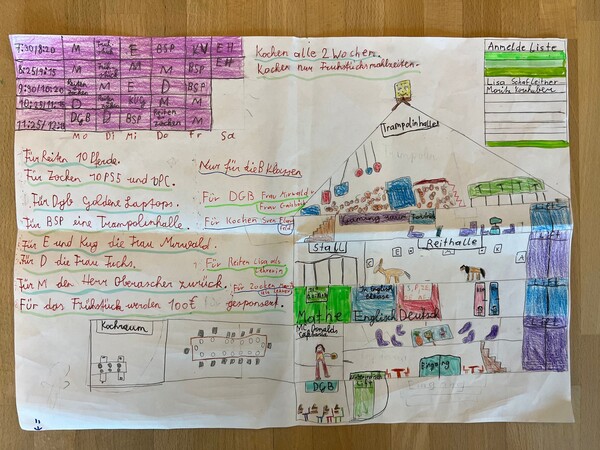 7:30/8:20 M Früh stück E BSP KV EH
8:25/9:15 M Früh stück M M BSP EH
9:30/10:20 Reiten Zocken M E D BSP
10:25/11:15 D Kug M M
11:25/12: DGB D BSP Reiten Zocken M
Mo Di Mi Do Fr Sa
Kochen alle 2 Wochen.
Kochen nur Frühstücksmahlzeiten.
Anmelde Liste
Lisa Schafleitner
Moritz
Trampolinhalle
Für Reiten 10 Pferde.
Für Zocken 10 PS5 und 1PC.
Für Dgb Goldene Laptops.
Für BSP eine Trampolinhalle.
Für E und Kug die Frau Murwald.
Für D die Frau Fuchs.
Für M den Herr Oberascher zurück.
Für das Frühstück werden 100€ gesponsert.
Nur für die B Klassen
Für DGB Frau Mirwald
Frau
Für Kochen Sven
Für Reiten Lisa als Lehrerin
Für Zocken
als Lehrer
Gaming raum
Lift
Stall
Reithalle
Mathe
Englisch
Deutsch
Kochraum
Mc. Donalds
DGB
Eingang